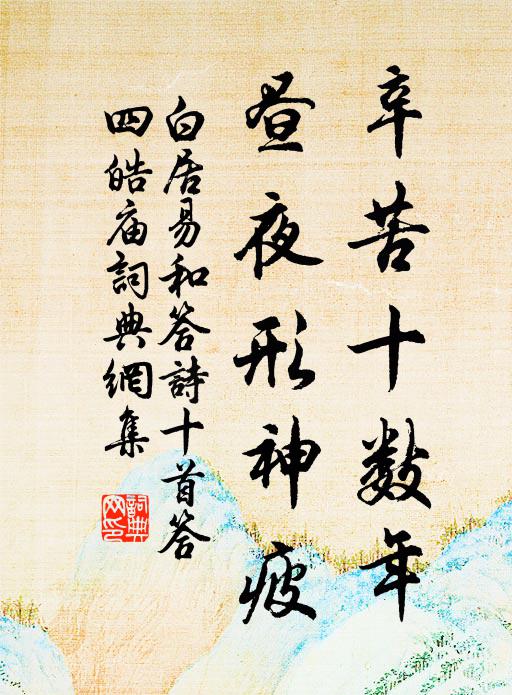 辛苦十数年
昼夜形神疲
白居易和答詩十首答
四皓庙詞典網集
詞典
网印